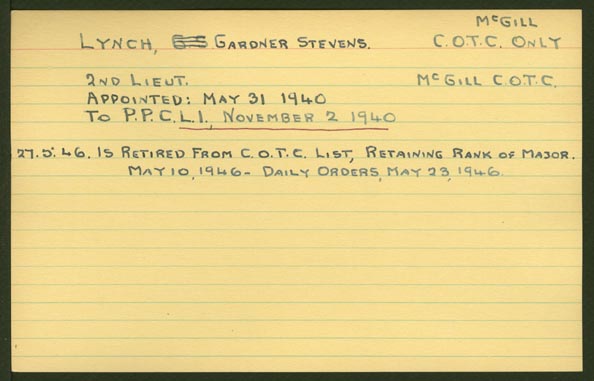 McGILL
LYNCH, GARDNER STEVENS. C.O.T.C. ONLY
2ND LIEUT. McGILL C.O.T.C.
APPOINTED: MAY 31 1940
TO P.P.C.L.I., NOVEMBER 2 1940
27.5.46. IS RETIRED FROM C.O.T.C. LIST, RETAINING RANK OF MAJOR.
MAY 10, 1946 - DAILY ORDERS, MAY 23, 1946.